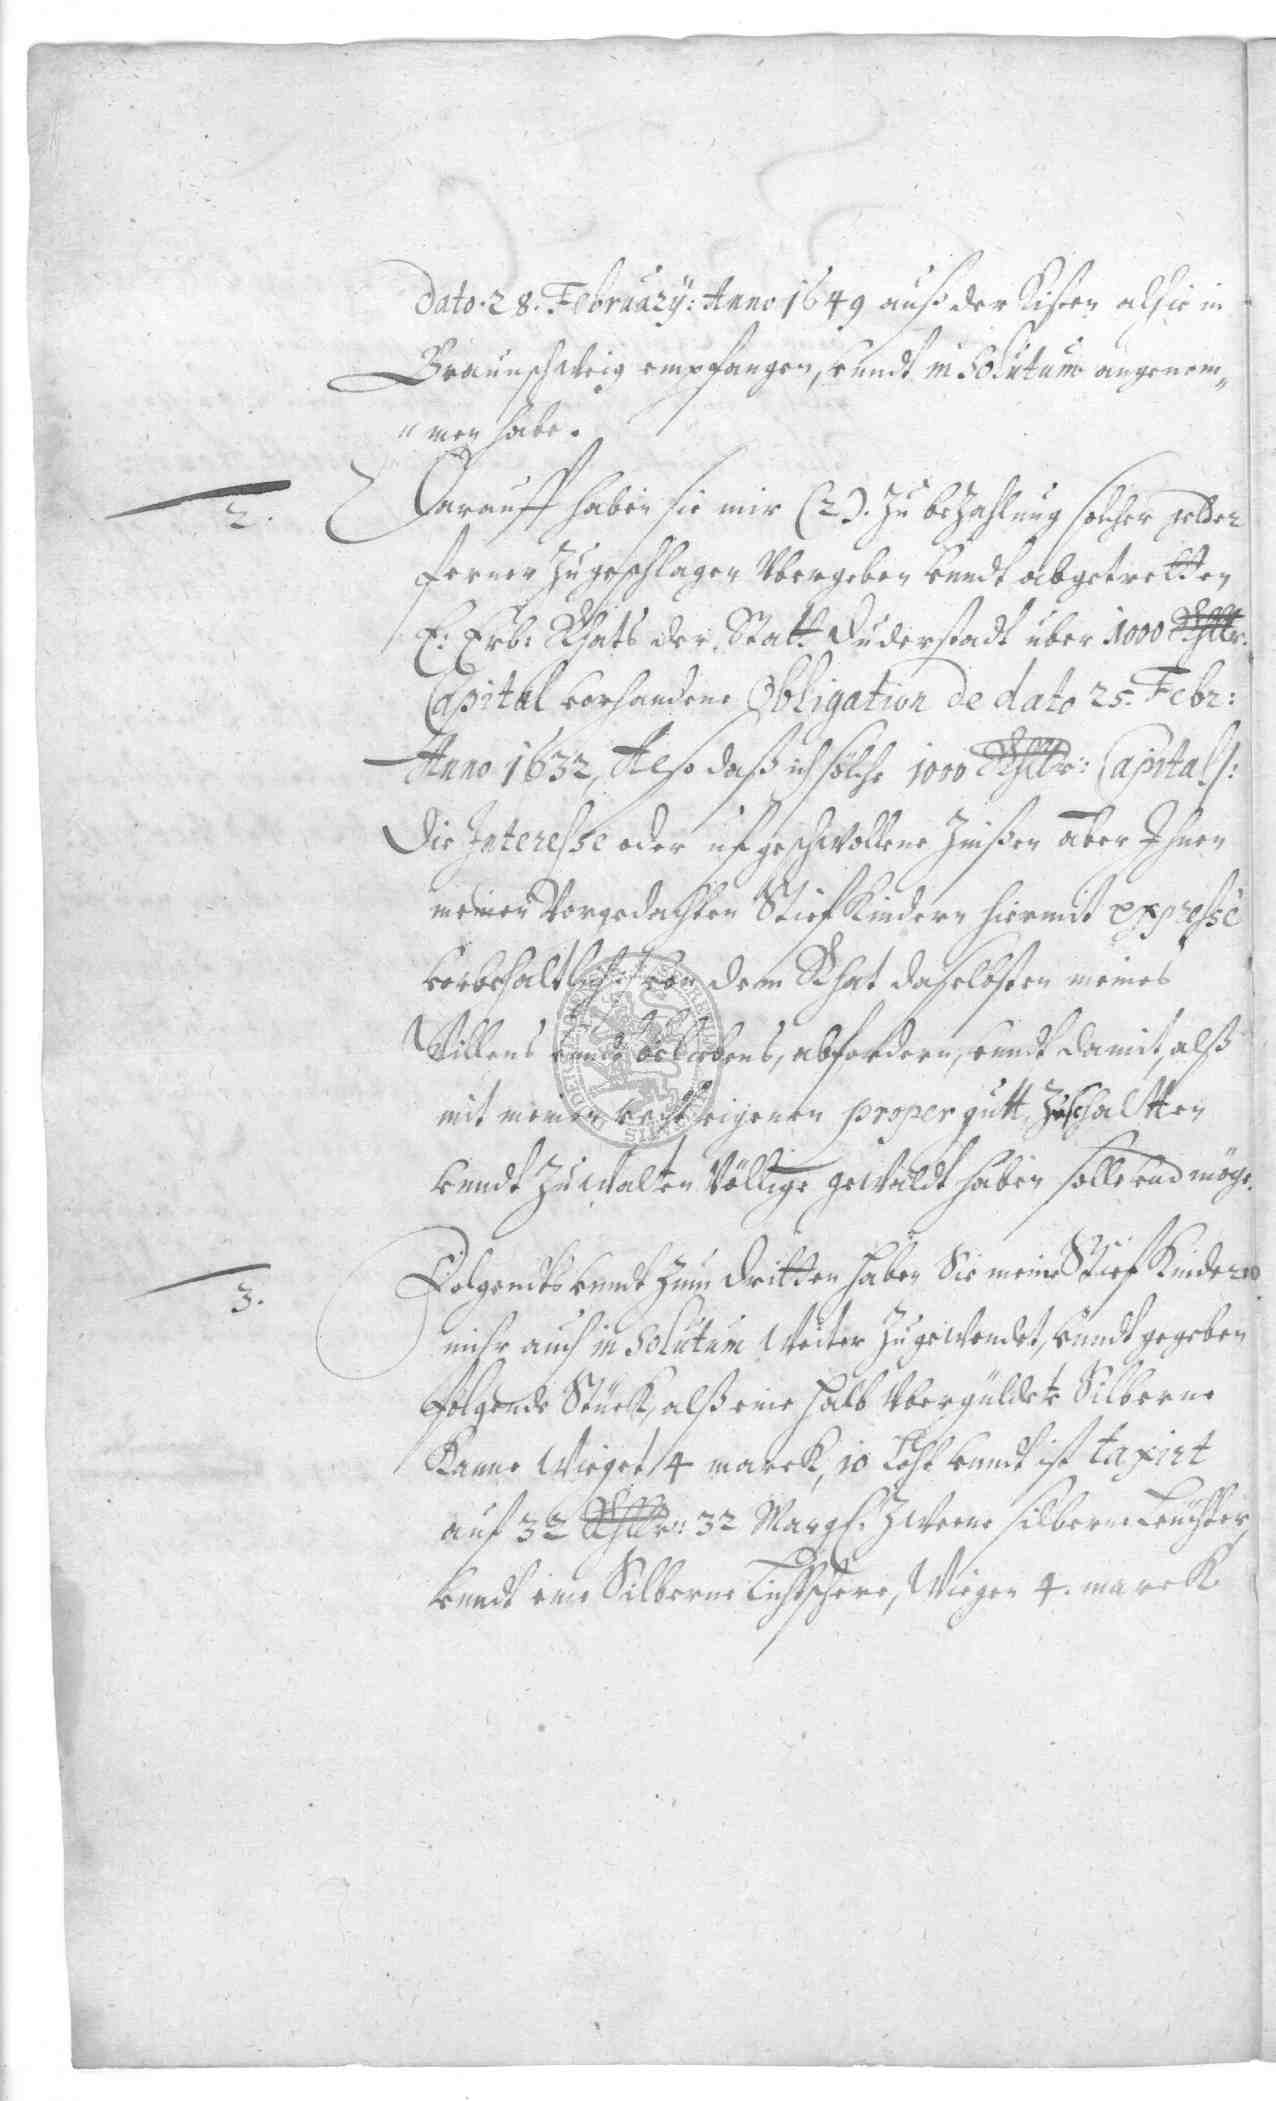 dato. 28. Februarÿ: Anno 1649 auß der Kisten alhie in
Braunschweig empfangen, unndt in Solutum angenom„
„men habe.
2.
Darauff haben sie mir (2). Zu bezahlung solcher gelder
ferner Zugeschlagen Vbergeben unndt abgetretten
E. Erb: Rhats der Statt Duderstadt über 1000 Rthllr:
Capital vorhandene Obligation de dato 25. Febr:
Anno 1632, Also daß ich solche 1000 Rthllr: Capitals:
Die Interesse oder ufgeschwollene Zinßen aber Ihnen
meinen Vorgedachten StiefKindern hiermit expresse
vorbehaltlich: von dem Rhat daselbsten meines
Willens unndt beliebens, abfordern, unndt damit, alß
mit meinen recht eigenen proper gutt, Zuschaltten
unndt Zuwalten Völlige gewaldt haben solle und möge.
3.
Folgendts unndt Zum dritten haben Sie meine StiefKindern
mihr auch in Solutum Weiter Zugewendet, unndt gegeben
folgende Stück, alß eine halb Vbergüldete Silberne
Kanne Wieget 4 marck, 10 Loht unndt ist taxirt
auf 32 Rthllr: 32 Margl. Zweene silberne Leuchter
unndt eine Silberne Lichtschere, Wiegen 4. marck